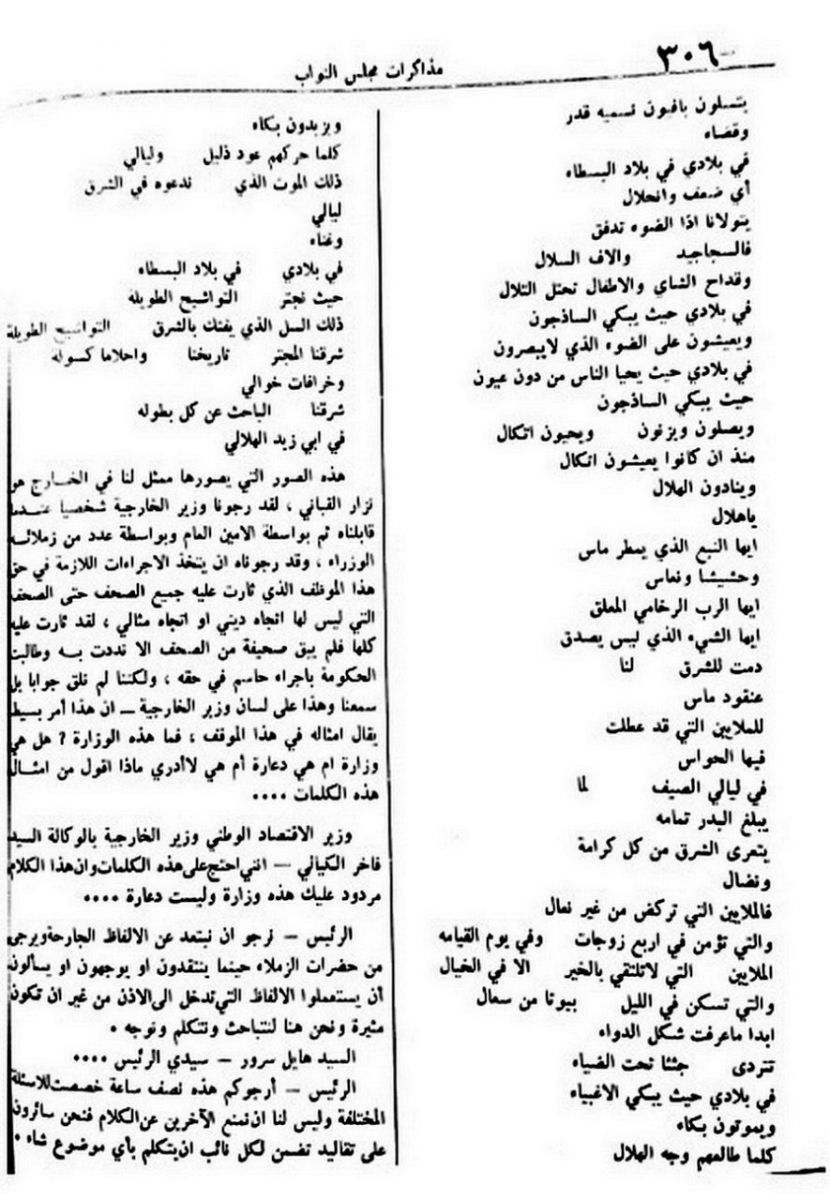 ٣٠٦
مذاكرات مجلس النواب
يتسلون بافيون نسميه قدر
وقضاء
في بلادي في بلاد البسطاء
أي ضعف وانحلال
يتولانا اذا الضوء تدفق
فالسجاجيد والاف السلال
وقداح الشاي والاطفال تحتل التلال
في بلادي حيث يبكي الساذجون
ويعيشون على الضوء الذي لايبصرون
في بلادي حيث يحيا الناس من دون عيون
حيث يبكي الساذجون
ويصلون ويزنون ويحيون اتكال
منذ ان كانوا يعيشون اتكال
وينادون الهلال
ياهلال
ايها النبع الذي يمطر ماس
وحشيشا ونعاس
ايها الرب الرخامي المعلق
ايها الشيء الذي ليس يصدق
دمت للشرق لنا
عنقود ماس
للملايين التي قد عطلت
فيها الحواس
في ليالي الصيف لما
يبلغ البدر تمامه
يتعرى الشرق من كل كرامة
ونضال
فالملايين التي تركض من غير نعال
والتي تؤمن في اربع زوجات وفي يوم القيامه
الملايين التي لاتلتقي بالخبر الا في الخيال
والتي تسكن في الليل بيوتا من سعال
ابدا ماعرفت شكل الدواء
تتردى جثثا تحت الضياء
في بلادي حيث يبكي الاغبياء
ويموتون بكاء
كلما طالعهم وجه الهلال
ويزيدون بكاء
كلما حركهم عود ذليل وليالي
ذلك الموت الذي ندعوه في الشرق
ليالي
وغناء
في بلادي في بلاد البسطاء
حيث نجتر التواشيح الطويلة
ذلك السل الذي يفتك بالشرق التواشيح الطويلة
شرقنا المجتر تاريخنا واحلاما كسولة
وخرافات خوالي
شرقنا الباحث عن كل بطوله
في ابي زيد الهلالي
هذه الصور التي يصورها ممثل لنا في الخارج هو
نزار القباني ، لقد رجونا وزير الخارجية شخصيا عندما
قابلناه ثم بواسطة الامين العام وبواسطة عدد من زملائه
الوزراء ، وقد رجوناه ان يتخذ الاجراءات اللازمة في حق
هذا الموظف الذي ثارت عليه جميع الصحف حتى الصحف
التي ليس لها اتجاه ديني او اتجاه مثالي ، لقد ثارت عليه
كلها فلم يبق صحيفة من الصحف الا نددت به وطالبت
الحكومة باجراء حاسم في حقه ، ولكننا لم نلق جوابا بل
سمعنا وهذا على لسان وزير الخارجية ـ ان هذا أمر بسيط
يقال امثاله في هذا الموقف ، فما هذه الوزارة ؟ هل هي
وزارة ام هي دعارة أم هي لاأدري ماذا اقول من امثال
هذه الكلمات ....
وزير الاقتصاد الوطني وزير الخارجية بالوكالة السيد
فاخر الكيالي ـ انني احتج على هذه الكلمات وان هذا الكلام
مردود عليك هذه وزارة وليست دعارة ....
الرئيس ـ نرجو ان نبتعد عن الالفاظ الجارحة ويرجى
من حضرات الزملاء حينما ينتقدون او يوجهون او يسألون
أن يستعملوا الالفاظ التي تدخل الى الاذن من غير ان تكون
مثيرة ونحن هنا لنتباحث ونتكلم ونوجه .
السيد هايل سرور ـ سيدي الرئيس ....
الرئيس ـ أرجوكم هذه نصف ساعة خصصت للاسئلة
المختلفة وليس لنا ان نمنع الآخرين عن الكلام فنحن سائرون
على تقاليد تضمن لكل نائب ان يتكلم بأي موضوع شاء .